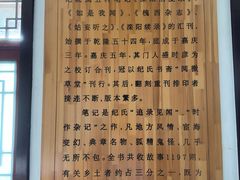 《如是我闻》、《槐西杂志》、
《姑妄听之》、《滦阳续录》的汇刊，
始作于乾隆五十四年，迄成于嘉庆
三年。嘉庆五年，其门人盛时彦为
之校订合刊，冠以纪氏书斋“阅微
草堂”刊行；其后，翻刻重刊排印者
接连不断，版本繁多。
笔记是纪氏“追录见闻”、“时
作杂记”之作，凡地方风情，宦海
变幻，典章名物，狐精鬼怪，几乎
无所不包，全书共收故事1107则，
有关乡土者约占三分之一，既